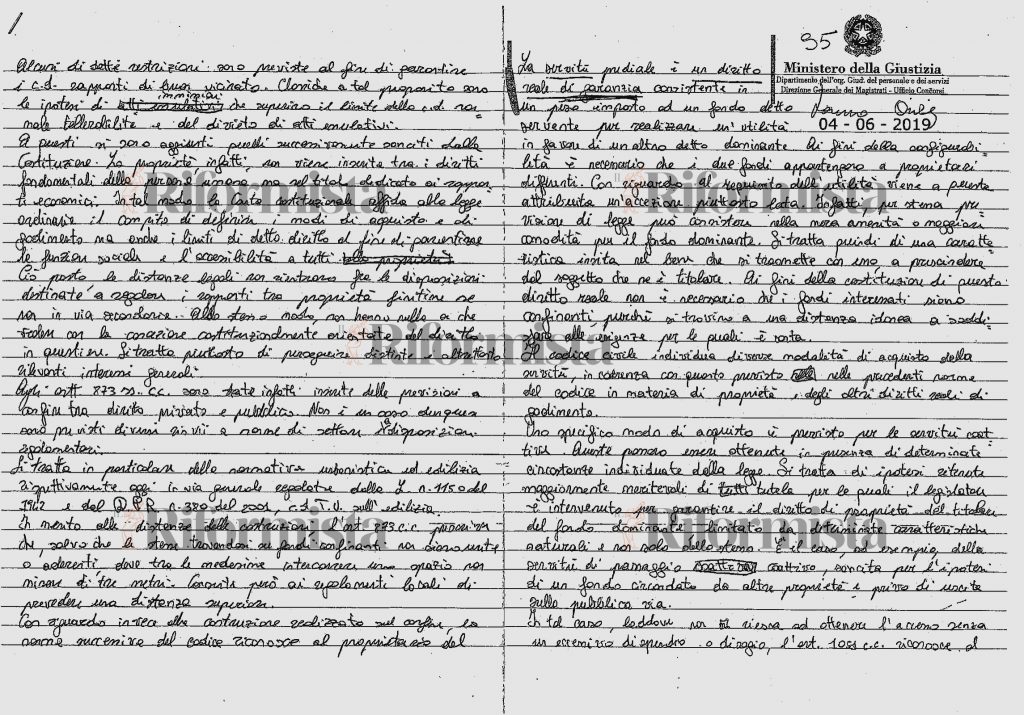 Alcuni di dette restrizioni sono previste al fine di garantire
i c.d. rapporti di buon vicinato. Classiche a tal proposito sono
le ipotesi di immissioni che superino il limite della c.d. nor-
male tollerabilità e del divieto di atti emulativi.
A questi si sono aggiunti quelli successivamente sanciti dalla
Costituzione. La proprietà infatti, non viene inserita tra i diritti
fondamentali della persona umana, ma nel titolo dedicato ai rappor-
ti economici. In tal modo la Carta costituzionale affida alla legge
ordinaria il compito di definire i modi di acquisto e di
godimento ma anche i limiti di detto diritto al fine di garantirne
la funzione sociale e l'accessibilità a tutti
Ciò posto le distanze legali non rientrano fra le disposizioni
destinate a regolare i rapporti tra proprietà finitime se
non in via secondaria. Allo stesso modo, non hanno nulla a che
vedere con la concezione costituzionalmente orientata del diritto
in questione. Si tratta piuttosto di perseguire distinti e altrettanto
rilevanti interessi generali.
Agli artt. 873 ss. c.c. sono state infatti inserite delle previsioni a
confine tra diritto privato e pubblico. Non è un caso dunque
sono previsti diversi rinvii a norme di settore e disposizioni
regolamentari.
Si tratta in particolare della normativa urbanistica ed edilizia
rispettivamente oggi in via generale regolate dalla L. n. 1150 del
1942 e dal D.P.R. n. 320 del 2001, c.d. T.U. sull'edilizia.
In merito alle distanze delle costruzioni l'art. 873 c.c. prescrive
che, salvo che le stesse trovandosi su fondi confinanti non siano unite
o aderenti, deve tra le medesime intercorrere uno spazio non
minore di tre metri. Consente però ai regolamenti locali di
prevedere una distanza superiore.
Con riguardo invece alla costruzione realizzata sul confine, la
norma successiva del codice riconosce al proprietario del
35
Ministero della Giustizia
Dipartimento dell'org. Giud. del personale e dei servizi
Direzione Generale dei Magistrati - Ufficio Concorsi
04 - 06 - 2019
La servitù prediale è un diritto
reale di garanzia consistente in
un peso imposto ad un fondo detto
servente per realizzare un'utilità
in favore di un altro detto dominante. Ai fini della configurabi-
lità è necessario che i due fondi appartengano a proprietari
differenti. Con riguardo al requisito dell'utilità viene a questa
attribuita un'accezione piuttosto lata. Infatti, per stessa pre-
visione di legge può consistere nella mera amenità o maggiore
comodità per il fondo dominante. Si tratta quindi di una caratte-
ristica insita nel bene che si trasmette con esso a prescindere
dal soggetto che ne è titolare. Ai fini della costituzione di questo
diritto reale non è necessario che i fondi interessati siano
confinanti purché si trovino a una distanza idonea a soddi-
sfare alle esigenze per le quali è sorta.
Il codice civile individua diverse modalità di acquisto della
servitù, in coerenza con quanto previsto nelle precedenti norme
del codice in materia di proprietà e degli altri diritti reali di
godimento.
Uno specifico modo di acquisto è previsto per le servitù coat-
tive. Queste possono essere ottenute in presenza di determinate
circostanze individuate dalla legge. Si tratta di ipotesi ritenute
maggiormente meritevoli di tutela per le quali il legislatore
è intervenuto per garantire il diritto di proprietà del titolare
del fondo dominante limitato da determinate caratteristiche
naturali e non solo dello stesso. È il caso, ad esempio, della
servitù di passaggio coattivo sancita per l'ipotesi
di un fondo circondato da altre proprietà e privo di uscita
sulla pubblica via.
In tal caso, laddove non si riesca ad ottenere l'accesso senza
un eccessivo dispendio o disagio, l'art. 1051 c.c. riconosce al
Riformista
Riformista
Riformista
Riformista
Riformista